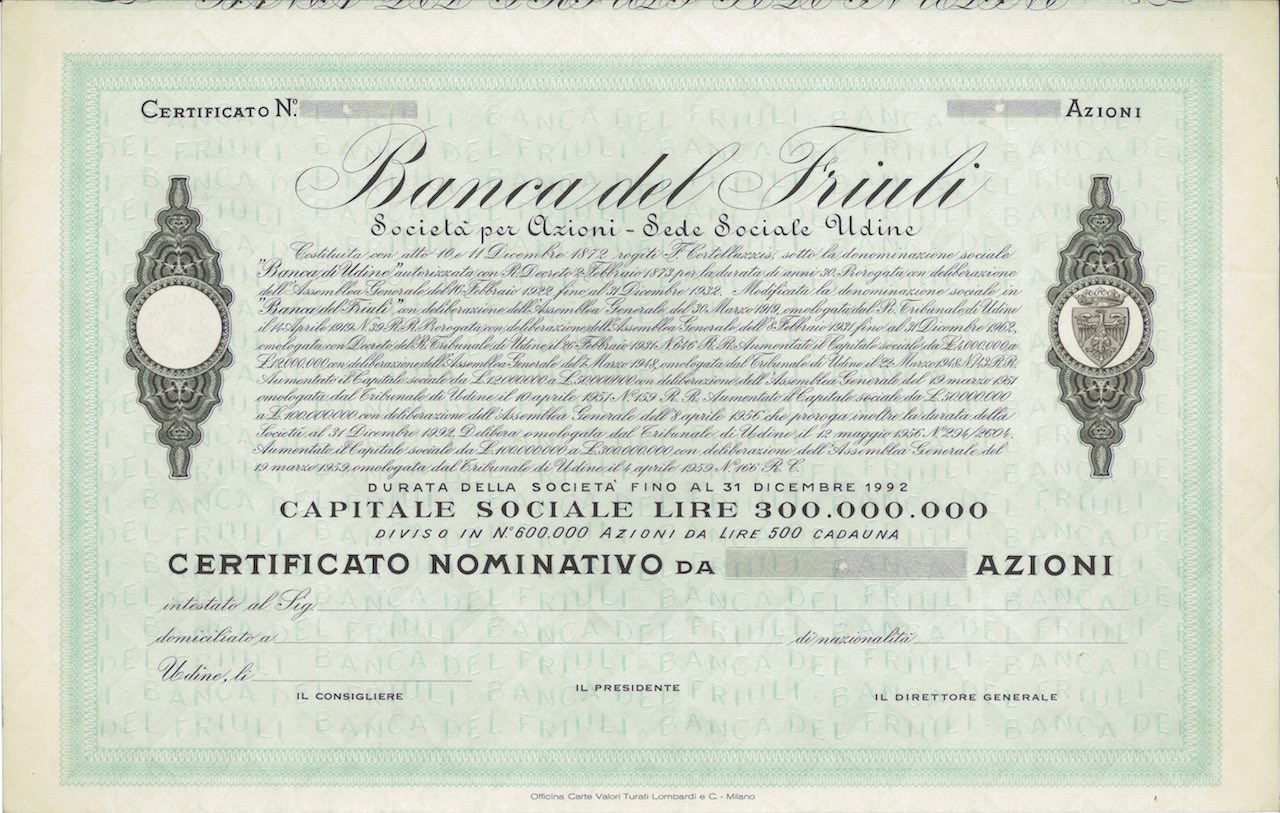 CERTIFICATO Nº.
AZIONI
Banca del Friuli
Società per Azioni - Sede Sociale Udine
Costituita con atto 10 e 11 Dicembre 1872, rogiti F. Cortellazzis, sotto la denominazione sociale
"Banca di Udine" autorizzata con R. Decreto 2 Febbraio 1873 per la durata di anni 30. Prorogata con deliberazione
dell'Assemblea Generale del 16 Febbraio 1922 fino al 31 Dicembre 1932. Modificata la denominazione sociale in
"Banca del Friuli", con deliberazione dell'Assemblea Generale del 30 Marzo 1919, omologata dal R. Tribunale di Udine
il 14 Aprile 1919 N. 39 R.R. Prorogata con deliberazione dell'Assemblea Generale dell'8 Febbraio 1931 fino al 31 Dicembre 1962,
omologata con Decreto del R. Tribunale di Udine il 26 Febbraio 1931 - Nº R.R. Aumentato il Capitale sociale da L. a
L. 12.000.000 con deliberazione dell'Assemblea Generale del Marzo 1948, omologata dal Tribunale di Udine il 22 Marzo 1948 Nº 113 R.R.
Aumentato il Capitale sociale da L. 12.000.000 a L. con deliberazione dell'Assemblea Generale del 19 marzo 1951
omologata dal Tribunale di Udine il 10 aprile 1951 - Nº 159 R. R. Aumentato il Capitale sociale da L. 50.000.000
a L. 100.000.000 con deliberazione dell'Assemblea Generale dell'8 aprile 1956 che proroga inoltre la durata della
Società al 31 Dicembre 1992. Delibera omologata dal Tribunale di Udine, il 12 maggio 1956. Nº 294/2604.
Aumentato il Capitale sociale da L. 100.000.000 a L. 300.000.000, con deliberazione dell'Assemblea Generale del
19 marzo 1959, omologata dal Tribunale di Udine il 4 aprile 1959 Nº 166 R. C.
DURATA DELLA SOCIETA' FINO AL 31 DICEMBRE 1992
CAPITALE SOCIALE LIRE 300.000.000
DIVISO IN Nº 600.000 AZIONI DA LIRE 500 CADAUNA
CERTIFICATO NOMINATIVO DA AZIONI
intestato al Sig.
domiciliato a di nazionalità
Udine, lì
IL CONSIGLIERE
IL PRESIDENTE
IL DIRETTORE GENERALE
Officina Carte Valori Turati Lombardi e C. - Milano